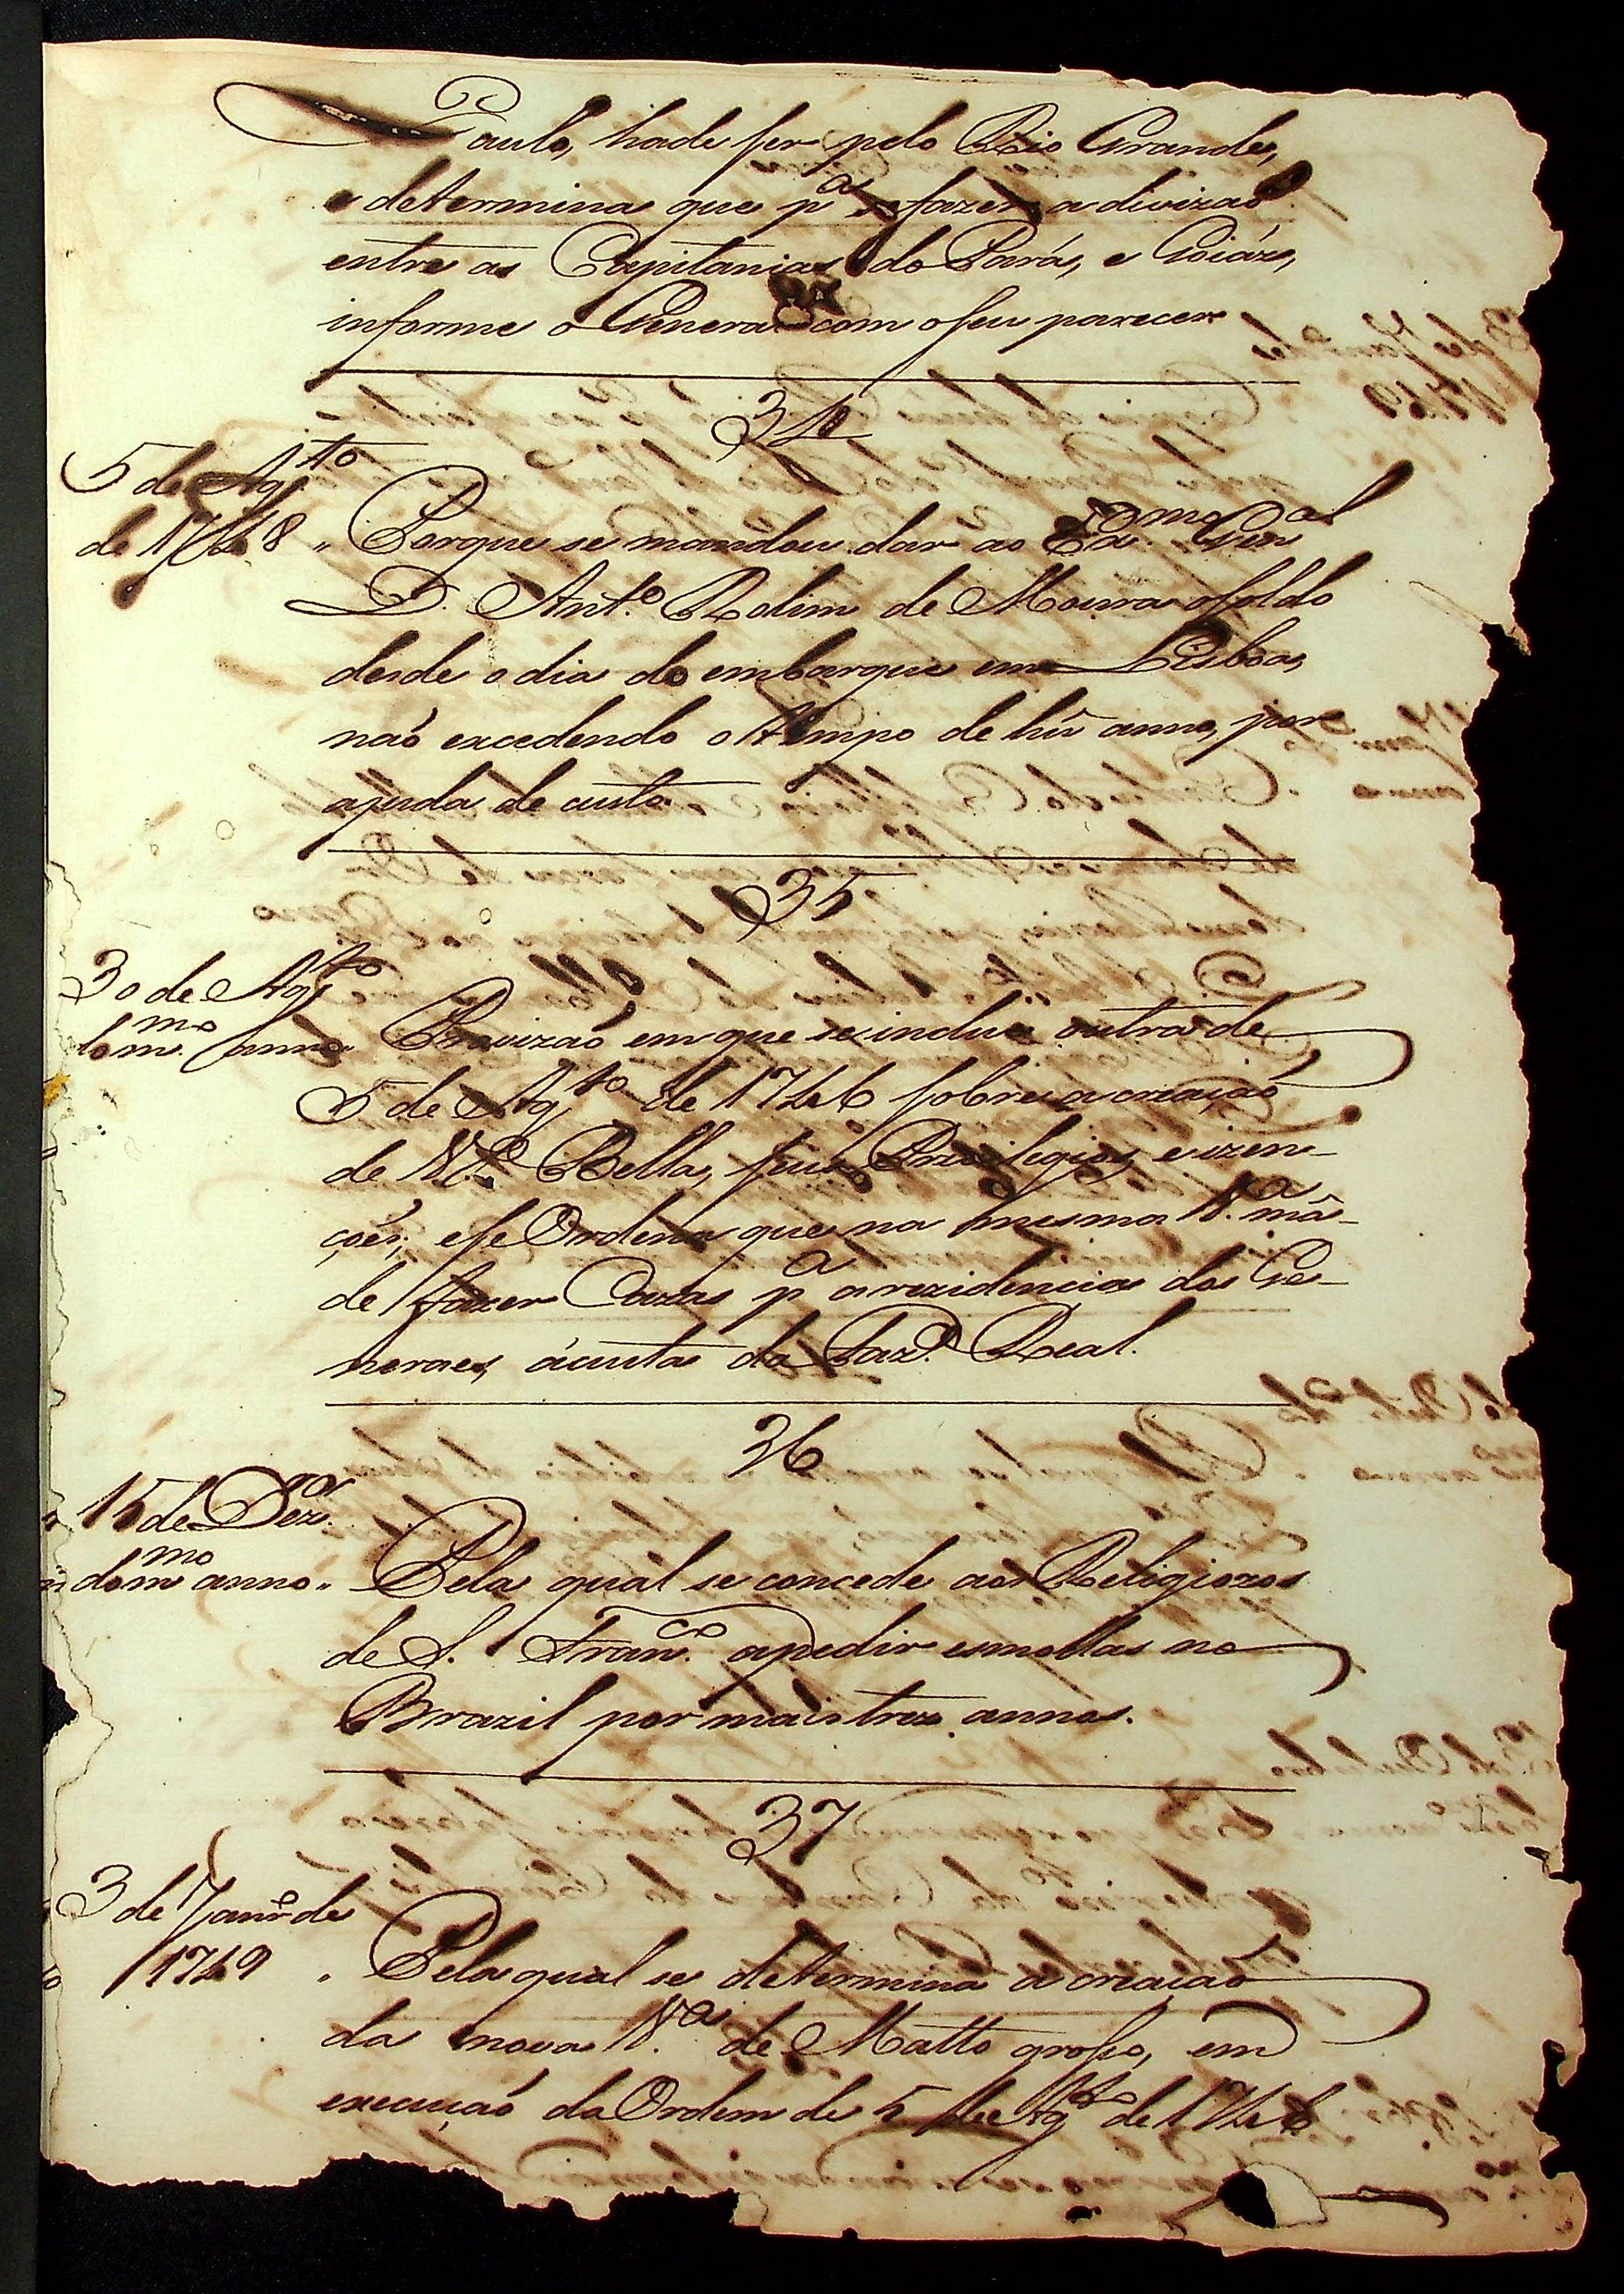 Paulo, hade ser pelo Rio Grande,
e determina que p.ª se fazer a divizaõ
entre as Capitanias do Pará, e Goiáz,
informe o General com o seu parecer
34
5 de Ag.to
de 1748 „ Porque se mandou dar ao Ex.mo Gen.al
D. Ant.º Rolim de Moura o soldo
desde o dia do embarque em Lisboa,
naõ excedendo o tempo de hũ anno, por
ajuda de custo.
35
30 de Ag.to
do m.mo anno „ Provizaõ em que se inclue outra de
5 de Ag.to de 1746 sobre a creaçaõ
de V.ª Bella, seus Privilegios, e izen-
çoẽs; e se Ordena que na mesma V.ª mã-
de fazer Cazas p.ª a rezidencia dos Ge-
neraes, á custa da Faz.da Real.
36
15 de Dez.or
do m.mo anno „ Pela qual se concede aos Religiozos
de S. Fran.co a pedir esmollas no
Brazil por mais trez annos.
37
3 de Janr.º de
1749 „ Pela qual se determina a creaçaõ
da nova V.ª de Matto grosso, em
execuçaõ da Ordem de 5 de Ag.to de 1746